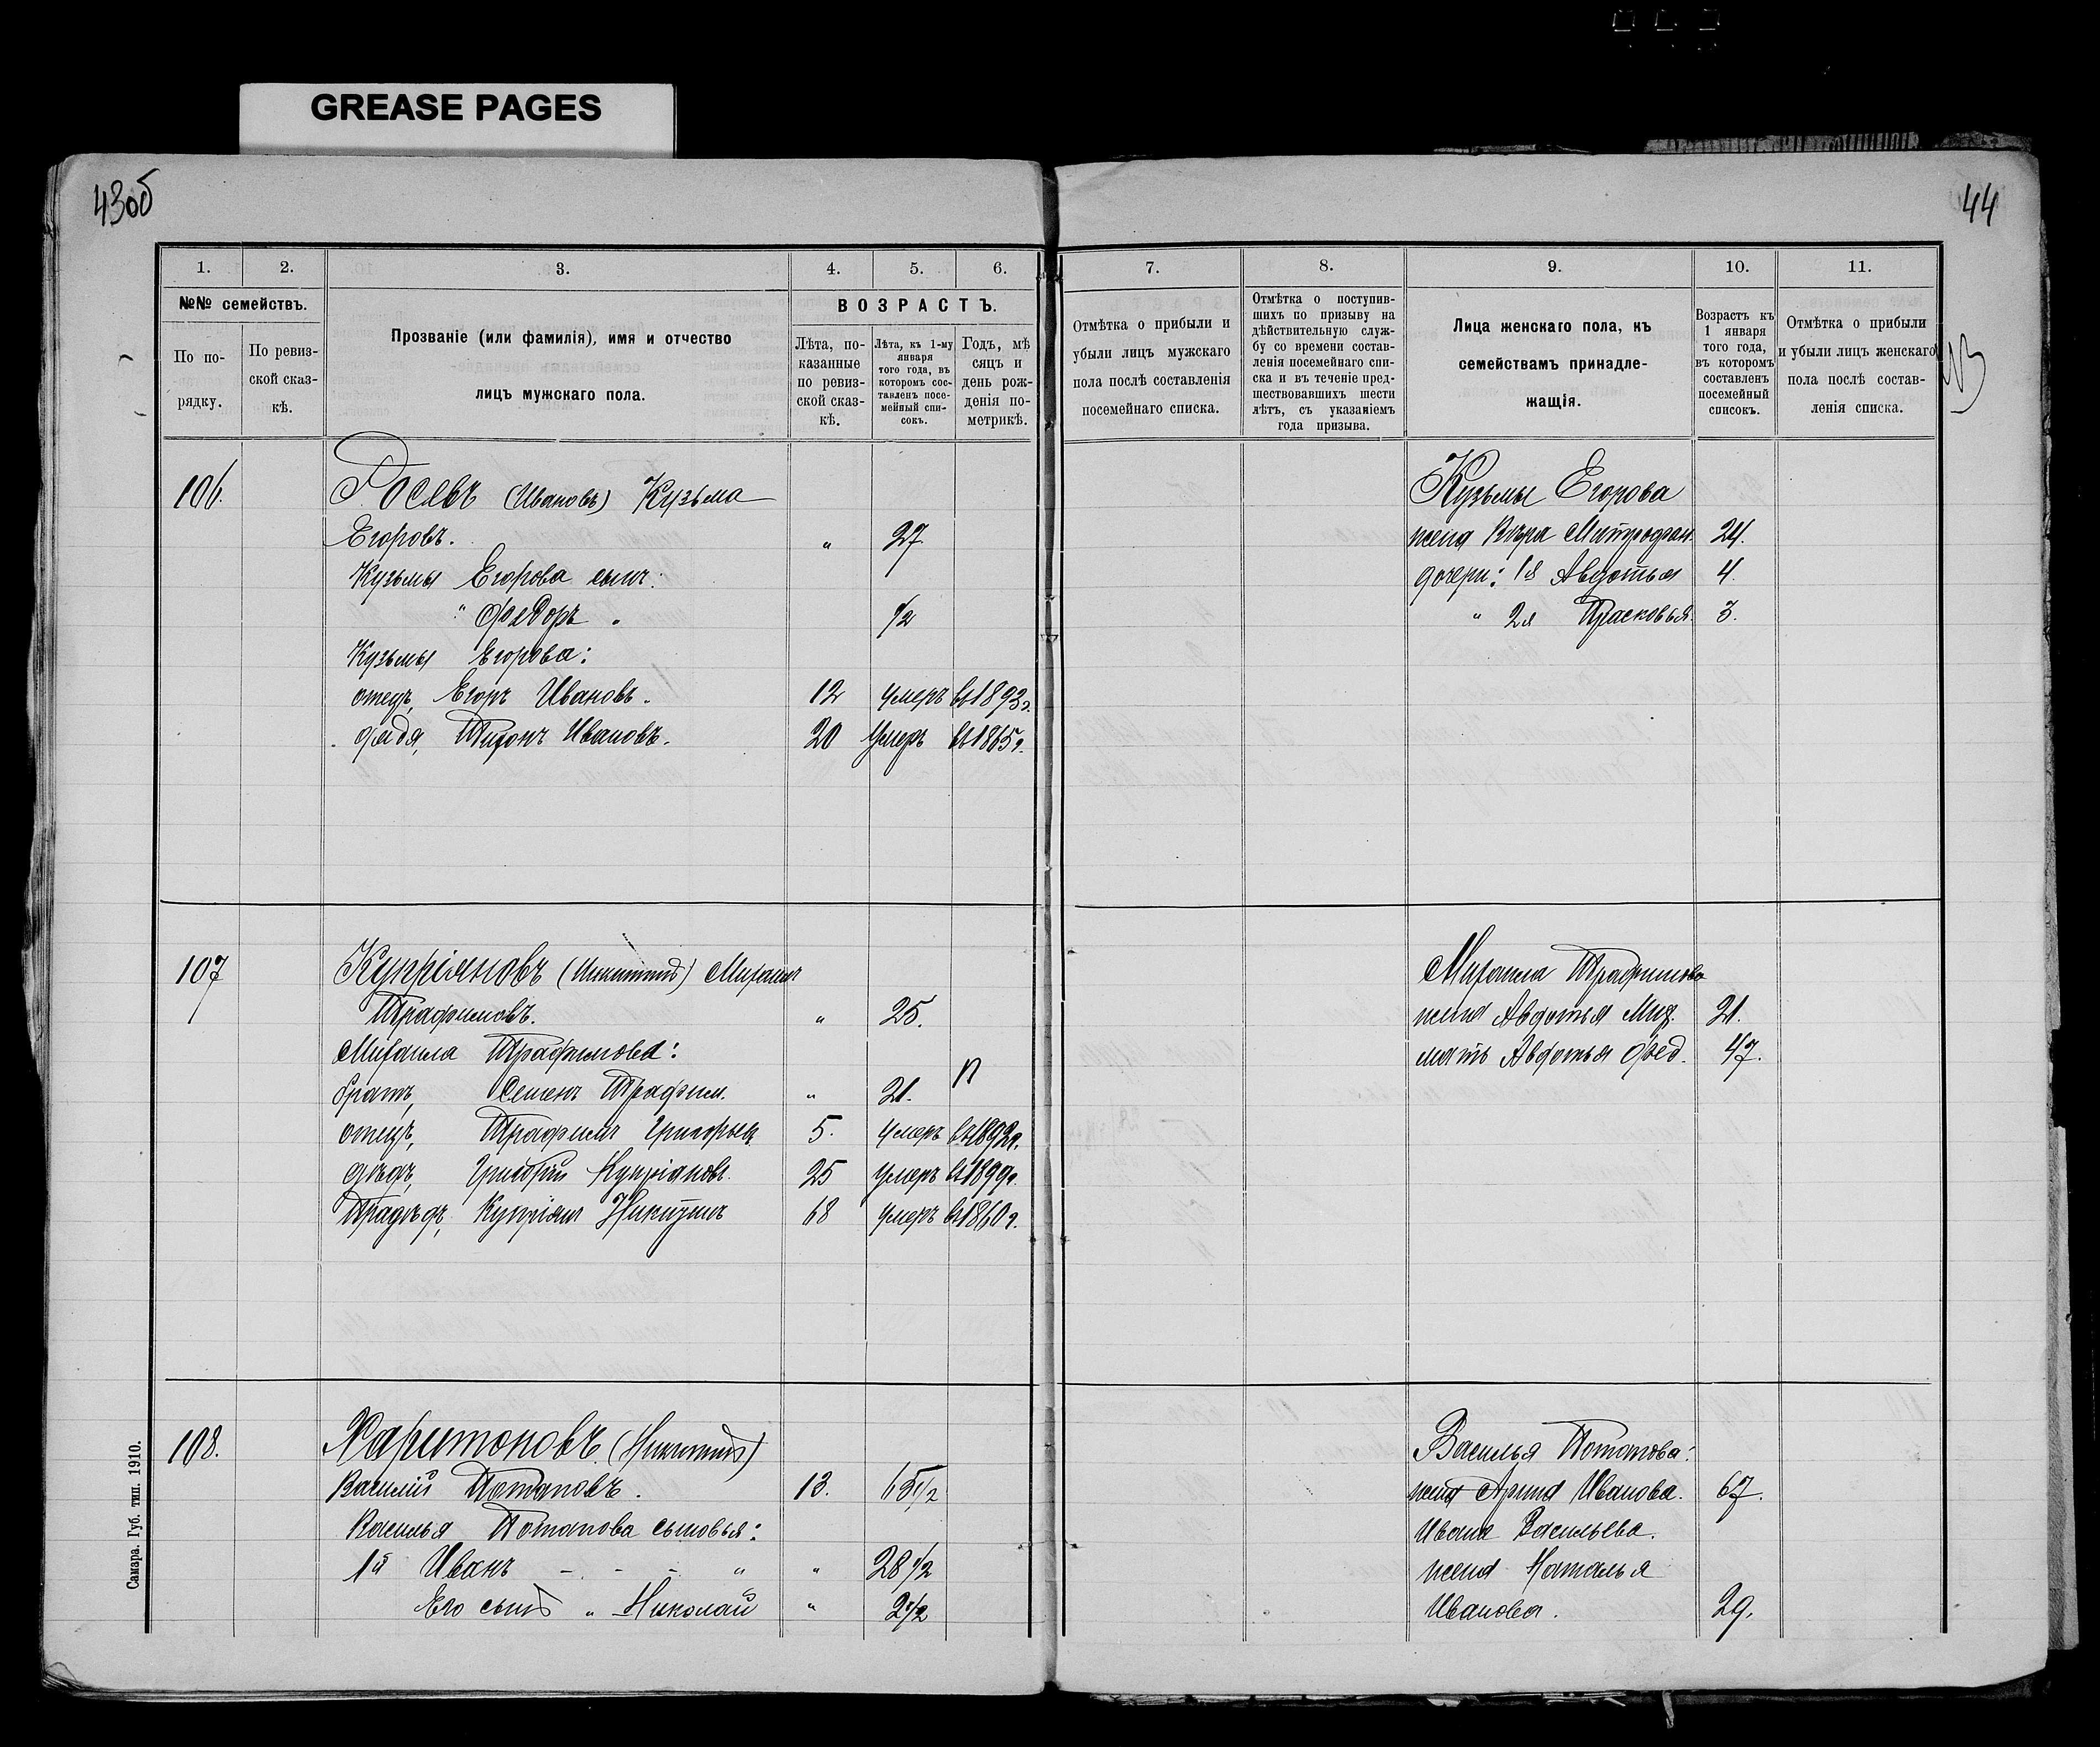 GREASE PAGES
43об
44
1.
2.
3.
4.
5.
6.
7.
8.
9.
10.
11.
№№ семействъ.
По по-
рядку.
По ревиз-
ской сказ-
кѣ.
Прозваніе (или фамилія), имя и отчество
лицъ мужскаго пола.
ВОЗРАСТЪ.
Лѣта, по-
казанные
по ревиз-
ской сказ-
кѣ.
Лѣта, къ 1-му
января
того года, въ
которомъ сос-
тавленъ посе-
мейный спи-
сокъ.
Годъ, мѣ
сяцъ и
день рож-
денія по-
метрикѣ.
Отмѣтка о прибыли и
убыли лицъ мужскаго
пола послѣ составленія
посемейнаго списка.
Отмѣтка о поступив-
шихъ по призыву на
дѣйствительную служ-
бу со времени состав-
ленія посемейнаго спи-
ска и въ теченіе пред-
шествовавшихъ шести
лѣтъ, съ указаніемъ
года призыва.
Лица женскаго пола, къ
семействамъ принадле-
жащія.
Возрастъ къ
1 января
того года,
въ которомъ
составленъ
посемейный
списокъ.
Отмѣтка о прибыли
и убыли лицъ женскаго
пола послѣ состав-
ленія списка.
106. (Ивановъ) Кузьма
Егоровъ. " 27.
Кузьмы Егорова сынъ:
" Федоръ " 1/2
Кузьмы Егорова:
отецъ, Егоръ Ивановъ. 12 умеръ въ 1893 г.
дядя, Ивановъ. 20 умеръ въ 1865 г.
Кузьмы Егорова
жена Вѣра Митрофан. 24.
дочери: 1я Авдотья 4.
" 2я Прасковья. 3.
107 Купріяновъ (Никитинъ) Михаилъ
Трафимовъ. " 25.
Михаила Трафимова:
братъ, Семенъ Трафим. " 21.
отецъ, Трафимъ Григорьев. 5. умеръ въ 1892 г.
дѣдъ, Григорій Купріяновъ. 25 умеръ въ 1899 г.
Прадѣдъ, Купріянъ Никитинъ 68 умеръ въ 1860 г.
Михаила Трафимова
жена Авдотья 21.
мать Авдотья Фед. 47.
108. Харитоновъ. (Никитинъ)
Василій Потаповъ. 13. 65 1/2
Василья Потапова сыновья:
1й Иванъ - - - " " 28 1/2
Его сынъ " Николай " 2 1/2
Василья Потапова:
жена Арина Иванова. 67.
Ивана Васильева.
жена Наталья
Иванова. 29.
Самара. Губ. тип. 1910.